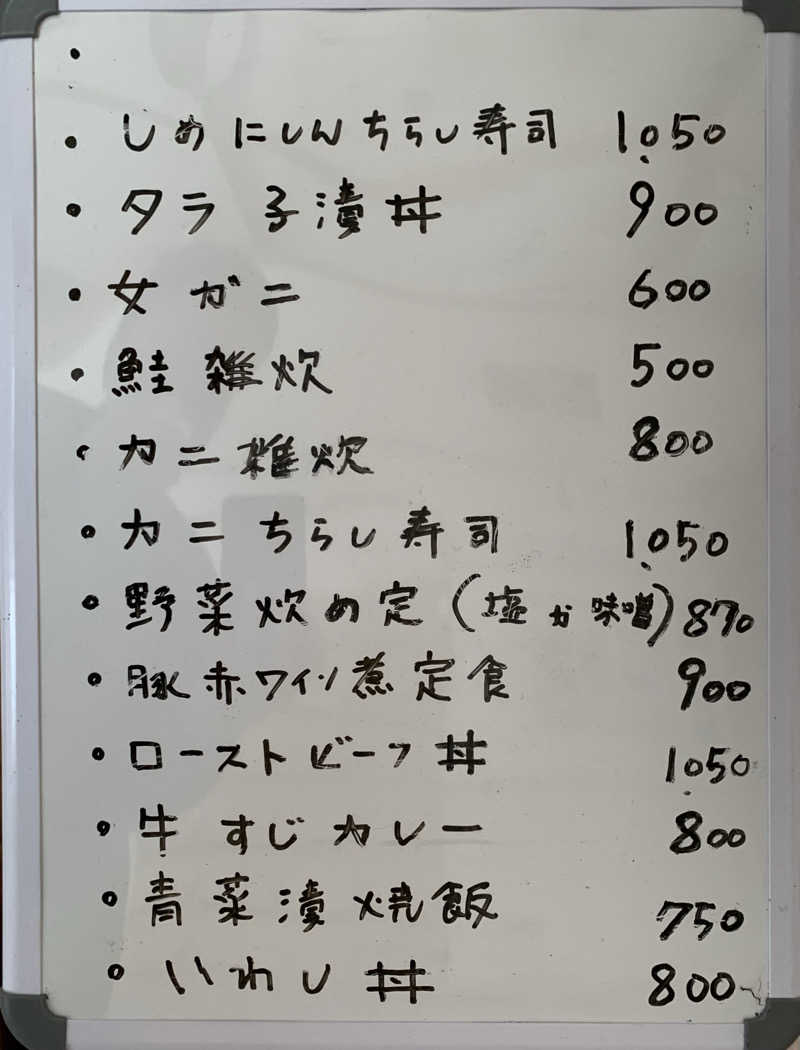 ・
・しめにしんちらし寿司 1.050
・タラ子漬丼 900
・女ガニ 600
・鮭雑炊 500
・カニ雑炊 800
・カニちらし寿司 1.050
・野菜炒め定(塩か味噌) 870
・豚赤ワイン煮定食 900
・ローストビーフ丼 1.050
・牛すじカレー 800
・青菜漬焼飯 750
・いわし丼 800